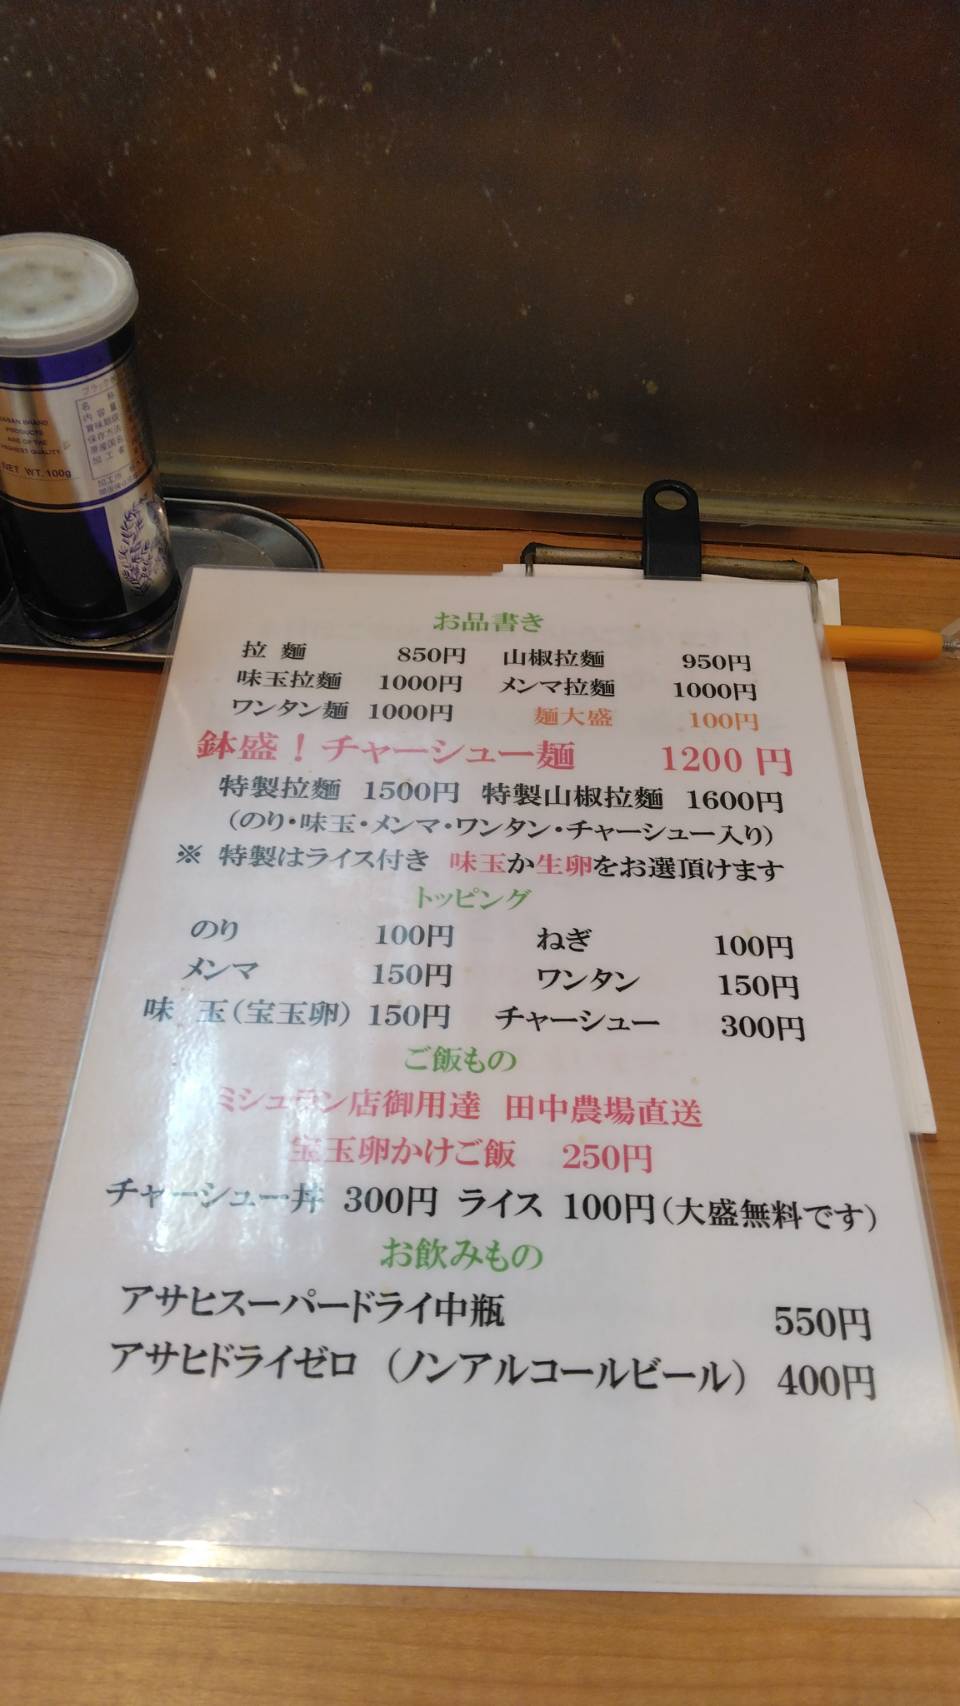 NET WT. 100g
名 称
内容量
賞味期限
保存方法
原産国名
加工者
お品書き
拉 麺 850円 山椒拉麺 950円
味玉拉麺 1000円 メンマ拉麺 1000円
ワンタン麺 1000円 麺大盛 100円
鉢盛！チャーシュー麺 1200円
特製拉麺 1500円 特製山椒拉麺 1600円
（のり・味玉・メンマ・ワンタン・チャーシュー入り）
※ 特製はライス付き 味玉か生卵をお選頂けます
トッピング
のり 100円 ねぎ 100円
メンマ 150円 ワンタン 150円
味 玉（宝玉卵） 150円 チャーシュー 300円
ご飯もの
ミシュラン店御用達 田中農場直送
宝玉卵かけご飯 250円
チャーシュー丼 300円 ライス 100円（大盛無料です）
お飲みもの
アサヒスーパードライ中瓶 550円
アサヒドライゼロ （ノンアルコールビール） 400円